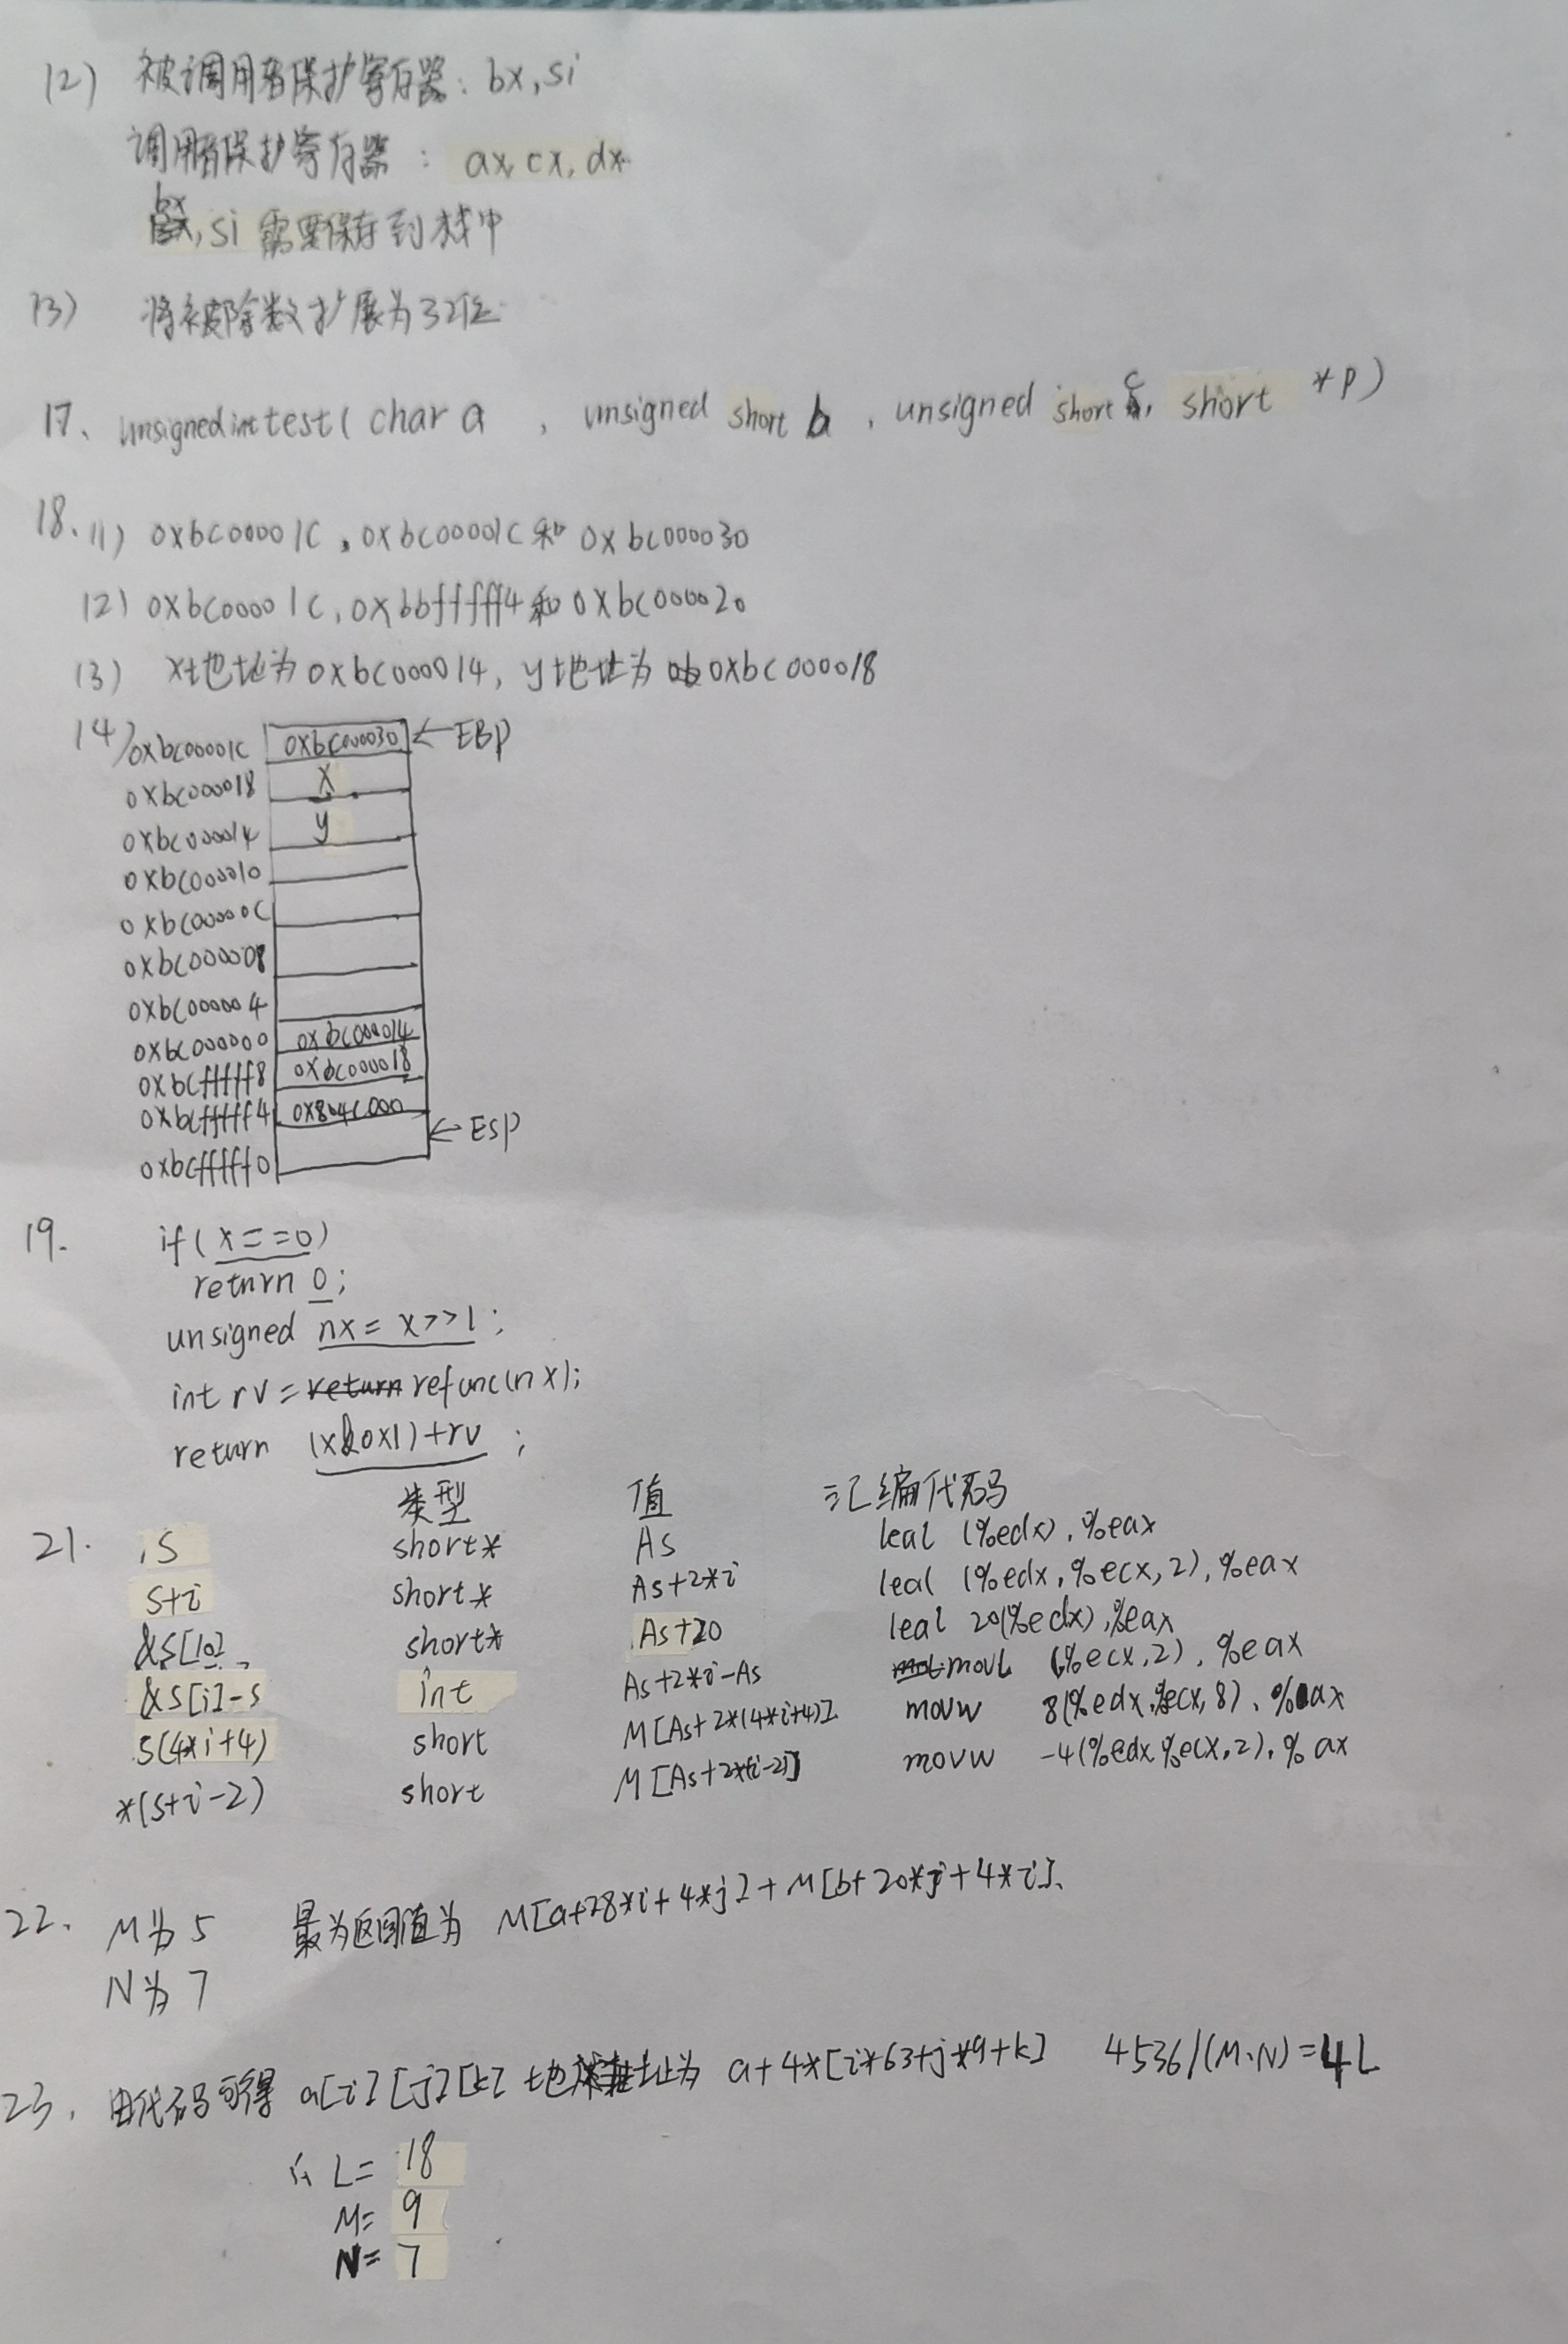 (2) 被调用者保护寄存器: bx, si
调用者保护寄存器: ax, cx, dx
bx, si 需要保存到栈中
(3) 将被除数扩展为32位
17、unsigned int test( char a , unsigned short b , unsigned short c, short *p)
18. (1) 0xbc00001c, 0xbc00001c和 0xbc000030
(2) 0xbc00001c, 0xbbfffff4和0xbc000020
(3) x地址为0xbc000014, y地址为 0xbc000018
(4) 0xbc00001c 0xbc000030 ← EBP
0xbc000018 x
0xbc000014 y
0xbc000010
0xbc00000c
0xbc000008
0xbc000004
0xbc000000 0xbc000014
0xbcfffff8 0xbc000018
0xbcfffff4 0x804c000
← ESP
0xbcfffff0
19. if( x==0)
return 0;
unsigned nx = x>>1;
int rv = return refunc(nx);
return (x&0x1)+rv ;
类型 值 汇编代码
21. S short* As leal (%edx), %eax
S+i short* As+2*i leal (%edx, %ecx, 2), %eax
&S[10] short* As+20 leal 20(%edx), %eax
&S[i]-s int As+2*i-As movl (,%ecx,2), %eax
S(4*i+4) short M[As+2*(4*i+4)] movw 8(%edx,%ecx,8), %ax
*(s+i-2) short M[As+2*(i-2)] movw -4(%edx,%ecx,2), %ax
22. M为 5 最为返回值为 M[a+28*i+4*j]+M[b+20*j+4*i]、
N为 7
23. 由代码可得 a[i][j][k] 地址为 a+4*[i*63+j*9+k] 4536/(M·N)=4L
∴ L= 18
M= 9
N= 7